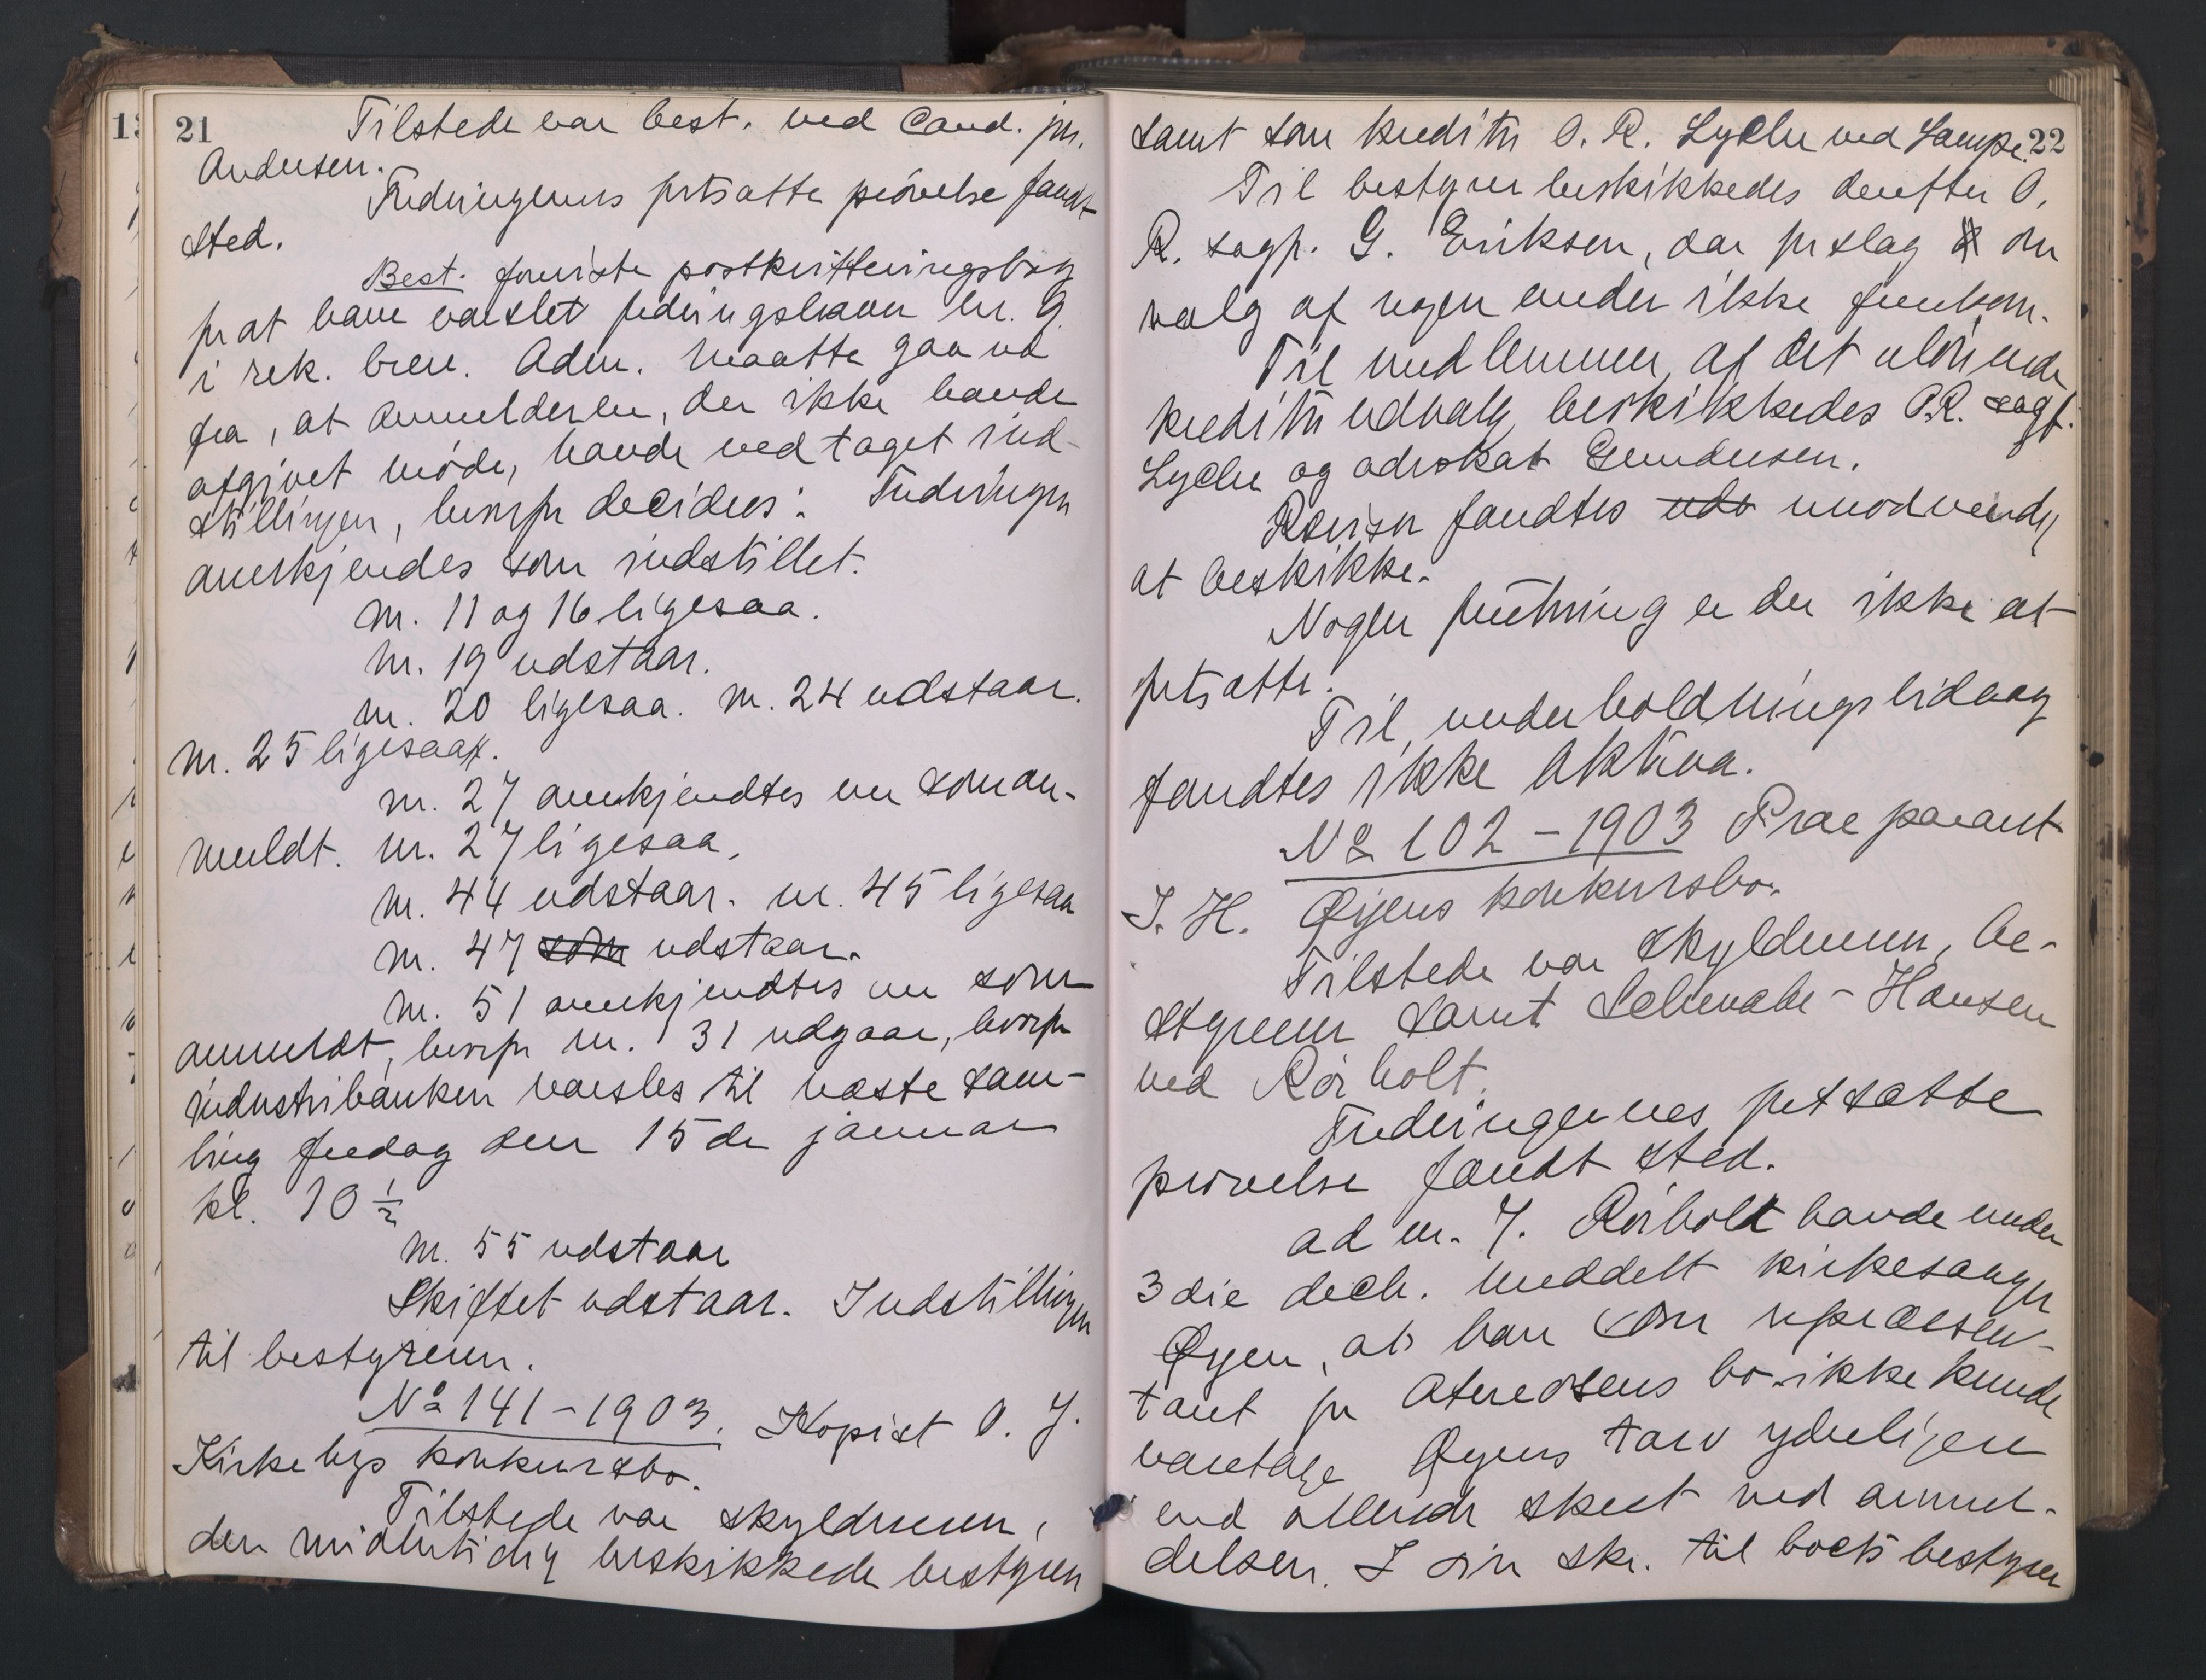 21
Tilstede var best. ved Cand. jur.
Andersen.
Fordringernes fortsatte prövelse fandt
sted.
Best. foreviste postkvitteringsbog
for at have varslet fordringshaver nr. 9
i rek. brev. Adm. maatte gaa ud
fra, at anmelderen, der ikke havde
afgivet möde, havde vedtaget ind-
stillingen, hvorfor decideres: Fordringen
anerkjendes som indstillet.
nr. 11 og 16 ligesaa.
nr. 19 udstaar.
nr. 20 ligesaa. nr. 24 udstaar.
nr. 25 ligesaa.
nr. 27 anerkjendtes nu som an-
meldt. nr. 27 ligesaa,
nr. 44 udstaar. nr. 45 ligesaa
nr. 47 som udstaar.
nr. 51 anerkjendtes nu som
anmeldt, hvorfor nr. 31 udgaar, hvorfor
industribanken varsles til næste sam-
ling fredag den 15de januar
kl. 10 ½
nr. 55 udstaar
Skiftet udstaar. Indstillingen
til bestyreren.
No 141-1903. Kopist O. J.
Kirkebys konkursbo.
Tilstede var skyldneren,
den midlertidig beskikkede bestyrer
22
samt som kreditor O. R. Lyche ved Lampe.
Til bestyrer beskikkedes derefter O.
R. sagf. G. Eriksen, da forslag om
valg af nogen anden ikke fremkom.
Til medlemmer af det ulönnede
kreditorudvalg beskikkedes O.R. sagf.
Lyche og advokat Gundersen.
Revisor fandtes udv unodvendig
at beskikke.
Nogen forretning er der ikke at
fortsætte.
Til underholdningsbidrag
fandtes ikke aktiva.
No 102-1903 Præparant
J. H. Øyens konkursbo.
Tilstede var skyldneren, be-
styreren samt Schwabe-Hansen
ved Rörholt.
Fordringernes fortsatte
prövelse fandt sted.
ad nr. 7. Rörholt havde under
3die decb. meddelt kirkesanger
Øyen, at han som repræsen-
tant for bo ikke kunde
varetage Øyens tarv yderligere
end allerede skeet ved anmel-
delsen. I sin skr. til boets bestyrer